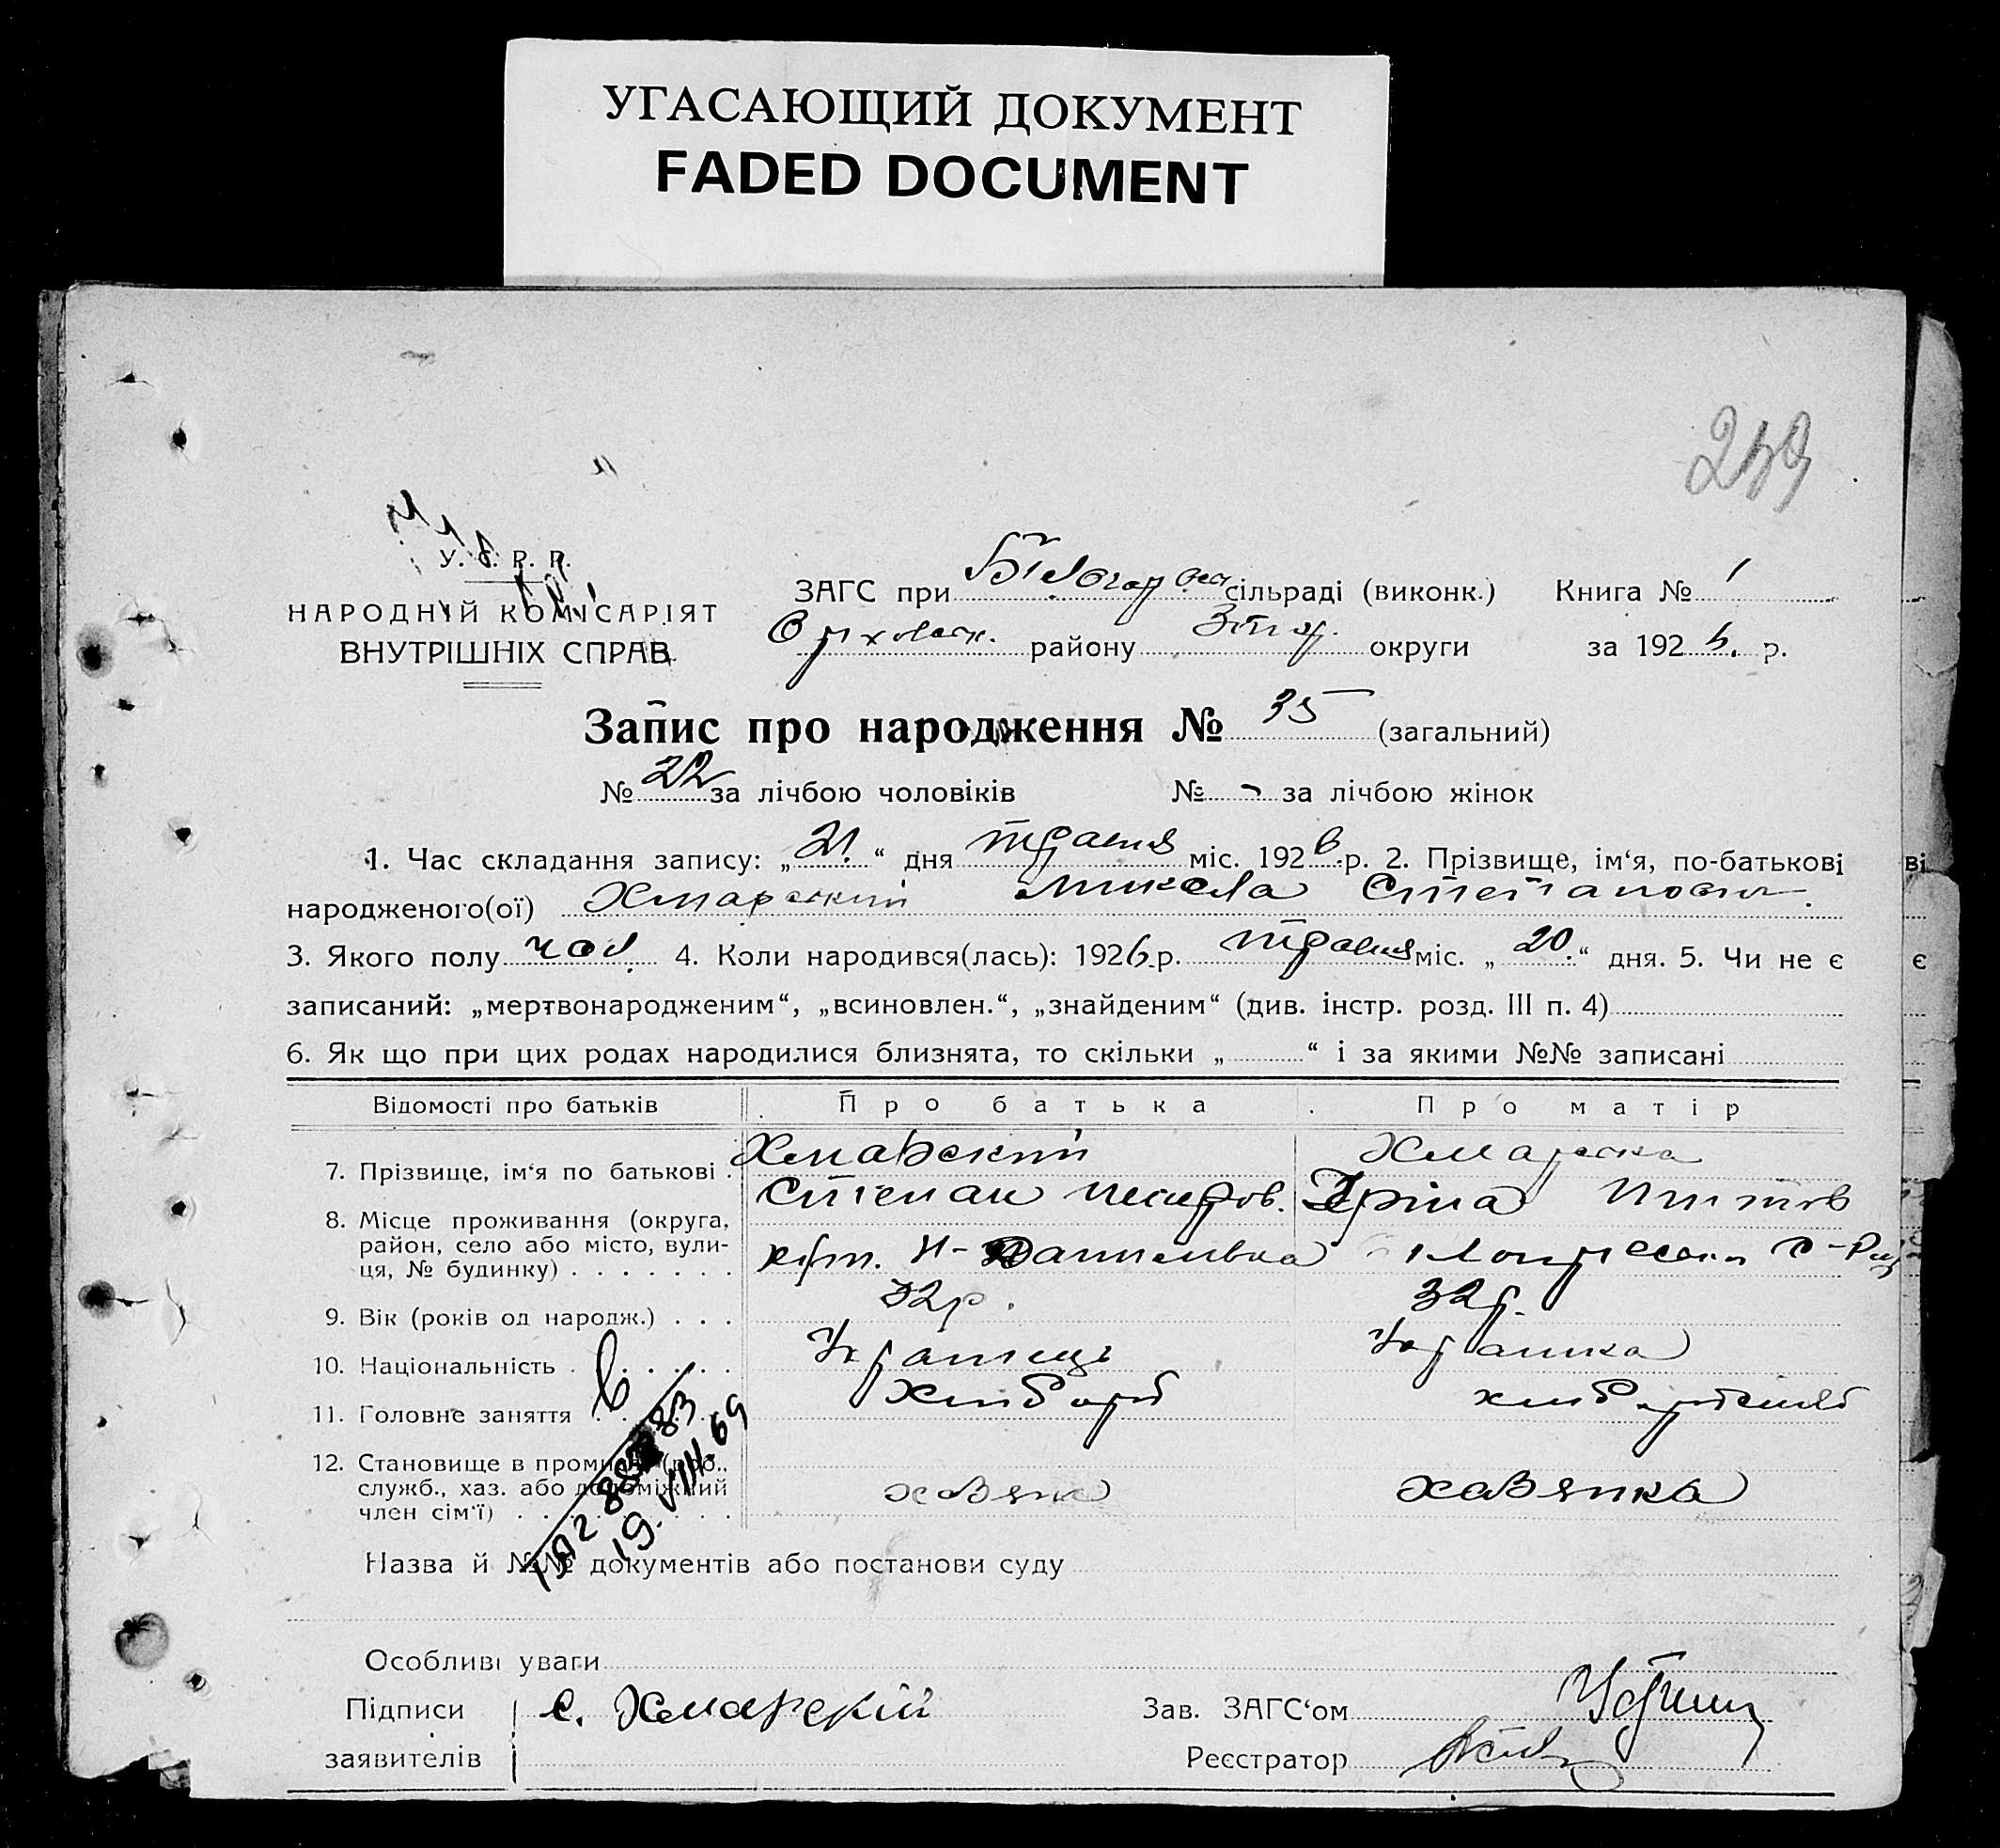 УГАСАЮЩИЙ ДОКУМЕНТ
FADED DOCUMENT
У. С. Р. Р.
НАРОДНІЙ КОМІСАРІЯТ
ВНУТРІШНІХ СПРАВ
ЗАГС при Білогор сільраді (виконк.) Книга № 1
району округи за 1926. р.
Запис про народження № 35 (загальний)
№ 22 за лічбою чоловіків № - за лічбою жінок
1. Час складання запису: „21.“ дня травня міс. 1926.р. 2. Прізвище, ім‘я, по-батькові
народженого(ої) Хмарский Микола Степанович.
3. Якого полу чол. 4. Коли народився(лась): 1926.р. травня міс. „20.“ дня. 5. Чи не є
записаний: „мертвонародженим“, „всиновлен.“, „знайденим“ (див. інстр. розд. III п. 4)
6. Як що при цих родах народилися близнята, то скільки „ “ і за якими №№ записані
Відомості про батьків Про батька Про матір
7. Прізвище, ім‘я по батькові . Хмарский Хмарска
Степан Іріна
8. Місце проживання (округа,
район, село або місто, вули-
ця, № будинку) . . . . . . .
9. Вік (років од народж.) . . . 32р. 32р.
10. Національність . . . . . . Українець Українка
11. Головне заняття . . . . . Хлібороб
12. Становище в промислі (роб.,
служб., хаз. або допоміжний
член сім‘ї) . . . . . . . . . хазяїн хазяйка
19. VIII. 69
Назва й №№ документів або постанови суду
Особливі уваги
Підписи С. Хмарскій Зав. ЗАГС‘ом
заявителів Реєстратор